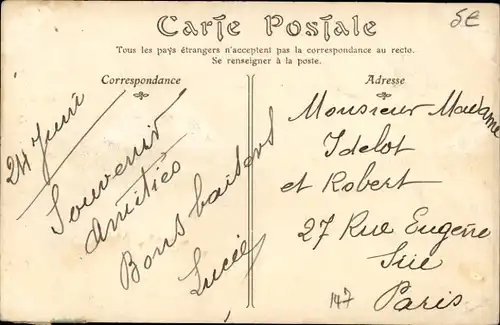 Carte Postale
5€
Tous les pays étrangers n'acceptent pas la correspondance au recto.
Se renseigner à la poste.
Correspondance
24 Juin
Souvenir
Amitiés
Bons baisers
Lucie
Adresse
Monsieur Madame
Idelot
et Robert
27 Rue Eugène
Sue
Paris
147